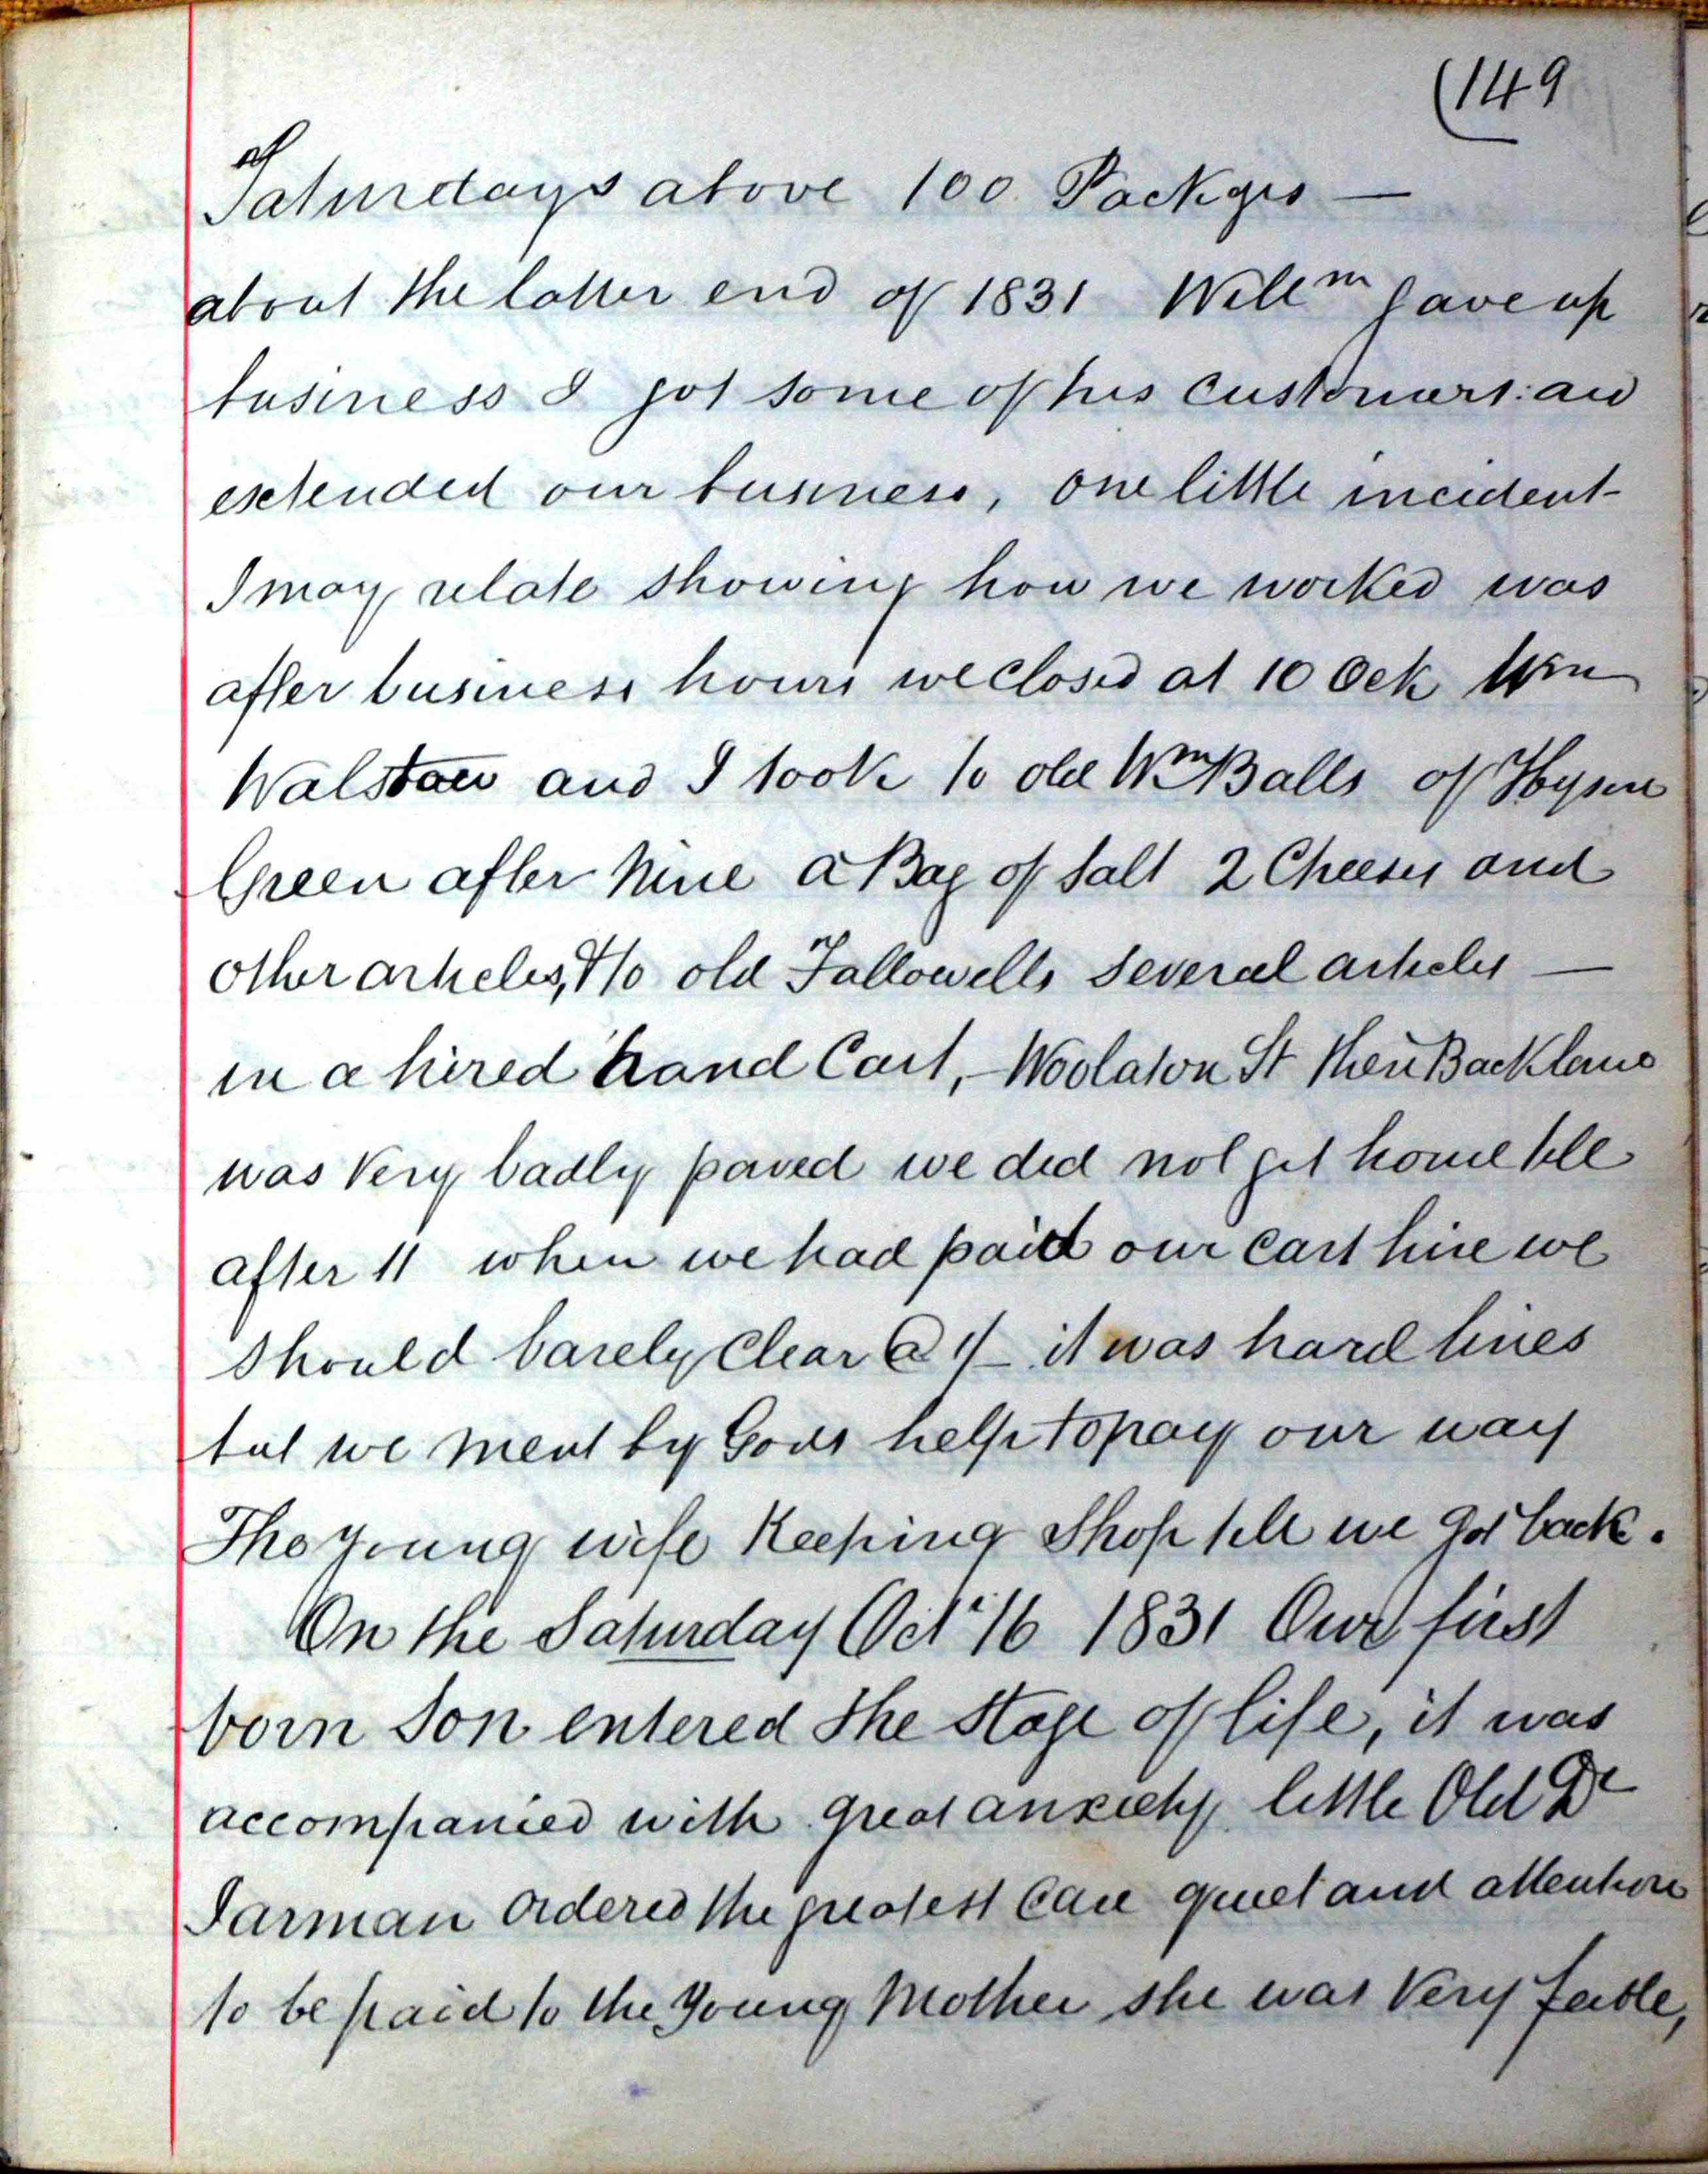 (149
of
Saturdays above 100 Packges —
about the latter end of 1831 Will^m gave up
business I got some of his customers: and
extended our business, one little incident
I may relate showing how we worked was
after business hours we closed at 10 Ock Wm
Walstow and I took to old W^m Balls of Hysen
Green after Nine a Bag of salt 2 Cheeses and
other articles, & to old Fallowells several articles —
in a hired hand Cart, - Woolaton St then Back lane
was Very badly paved we did not get home till
after 11 when we had paid our cart hire we
should barely Clear @ 1/- it was hard lines
but we ment by Gods help to pay our way
The young wife Keeping Shop till we got back.
On the Saturday Oct 16 1831 Our first
born Son entered the stage of life, it was
accompanied with great anxiety little Old Dr
Jarman ordered the greatest Care quiet and attention
to be paid to the young Mother she was Very feeble,